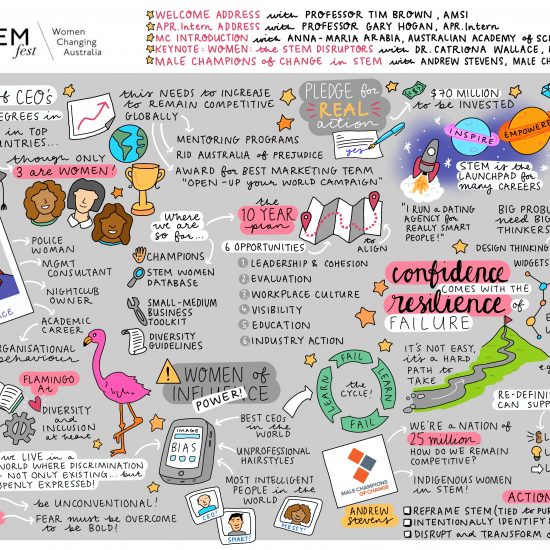 EM
fest
Women
Changing
Australia
WELCOME ADDRESS with PROFESSOR TIM BROWN, AMSI
APR.Intern ADDRESS with PROFESSOR GARY HOGAN, APR.Intern
MC INTRODUCTION with ANNA-MARIA ARABIA, AUSTRALIAN ACADEMY of SC
KEYNOTE: WOMEN: the STEM DISRUPTORS with DR. CATRIONA WALLACE,
MALE CHAMPIONS of CHANGE in STEM with ANDREW STEVENS, MALE CH
of CEO's
EGREES in
in TOP
NTRIES...
though only
3 are WOMEN!
this NEEDS to INCREASE
to REMAIN COMPETITIVE
GLOBALLY
MENTORING PROGRAMS
RID AUSTRALIA of PREJUDICE
AWARD for BEST MARKETING TEAM
"OPEN-UP your WORLD CAMPAIGN"
PLEDGE for
REAL
action
yes
$70 MILLION
to be INVESTED
INSPIRE
EMPOWER
STEM is the
LAUNCHPAD for
many CAREERS
"I RUN a DATING
AGENCY for
REALLY SMART
PEOPLE!"
BIG PROBL
need BIG
THINKERS
DESIGN THINKING
WIDGETS
POLICE
WOMAN
MGMT
CONSULTANT
NIGHTCLUB
OWNER
ACADEMIC
CAREER
NCE
Where
we are
so far...
CHAMPIONS
STEM WOMEN
DATABASE
SMALL-MEDIUM
BUSINESS
TOOLKIT
DIVERSITY
GUIDELINES
the
10 YEAR
plan
to
ALIGN
6 OPPORTUNITIES
1 LEADERSHIP & COHESION
2 EVALUATION
3 WORKPLACE CULTURE
4 VISIBILITY
5 EDUCATION
6 INDUSTRY ACTION
confidence
COMES WITH THE
resilience of
FAILURE
IT'S NOT EASY,
it's a HARD
PATH to
TAKE
e.g
RE-DEFINI
CAN SUPP
RGANISATIONAL
behaviour
FLAMINGO
Ai
DIVERSITY
and
INCLUSION
at heart
WOMEN of
INFLUENCE
POWER!
IMAGE
BIAS
BEST CEOs
in the
WORLD
UNPROFESSIONAL
HAIRSTYLES
MOST INTELLIGENT
PEOPLE in the
WORLD
CEO!
SMART!
MESSY!
FAIL
LEARN
FAIL
LEARN
the
CYCLE!
MALE CHAMPIONS
OF CHANGE
ANDREW
Stevens
WE'RE a NATION of
25 million
HOW DO WE REMAIN
COMPETITIVE?
INDIGENOUS WOMEN
in STEM!
we LIVE in a
WORLD WHERE DISCRIMINATION
NOT ONLY EXISTING...but
OPENLY EXPRESSED!
be UNCONVENTIONAL!
FEAR must be OVERCOME
to be BOLD!
ACTION
REFRAME STEM (TIED to PUR
INTENTIONALLY IDENTIFY
DISRUPT and TRANSFORM a